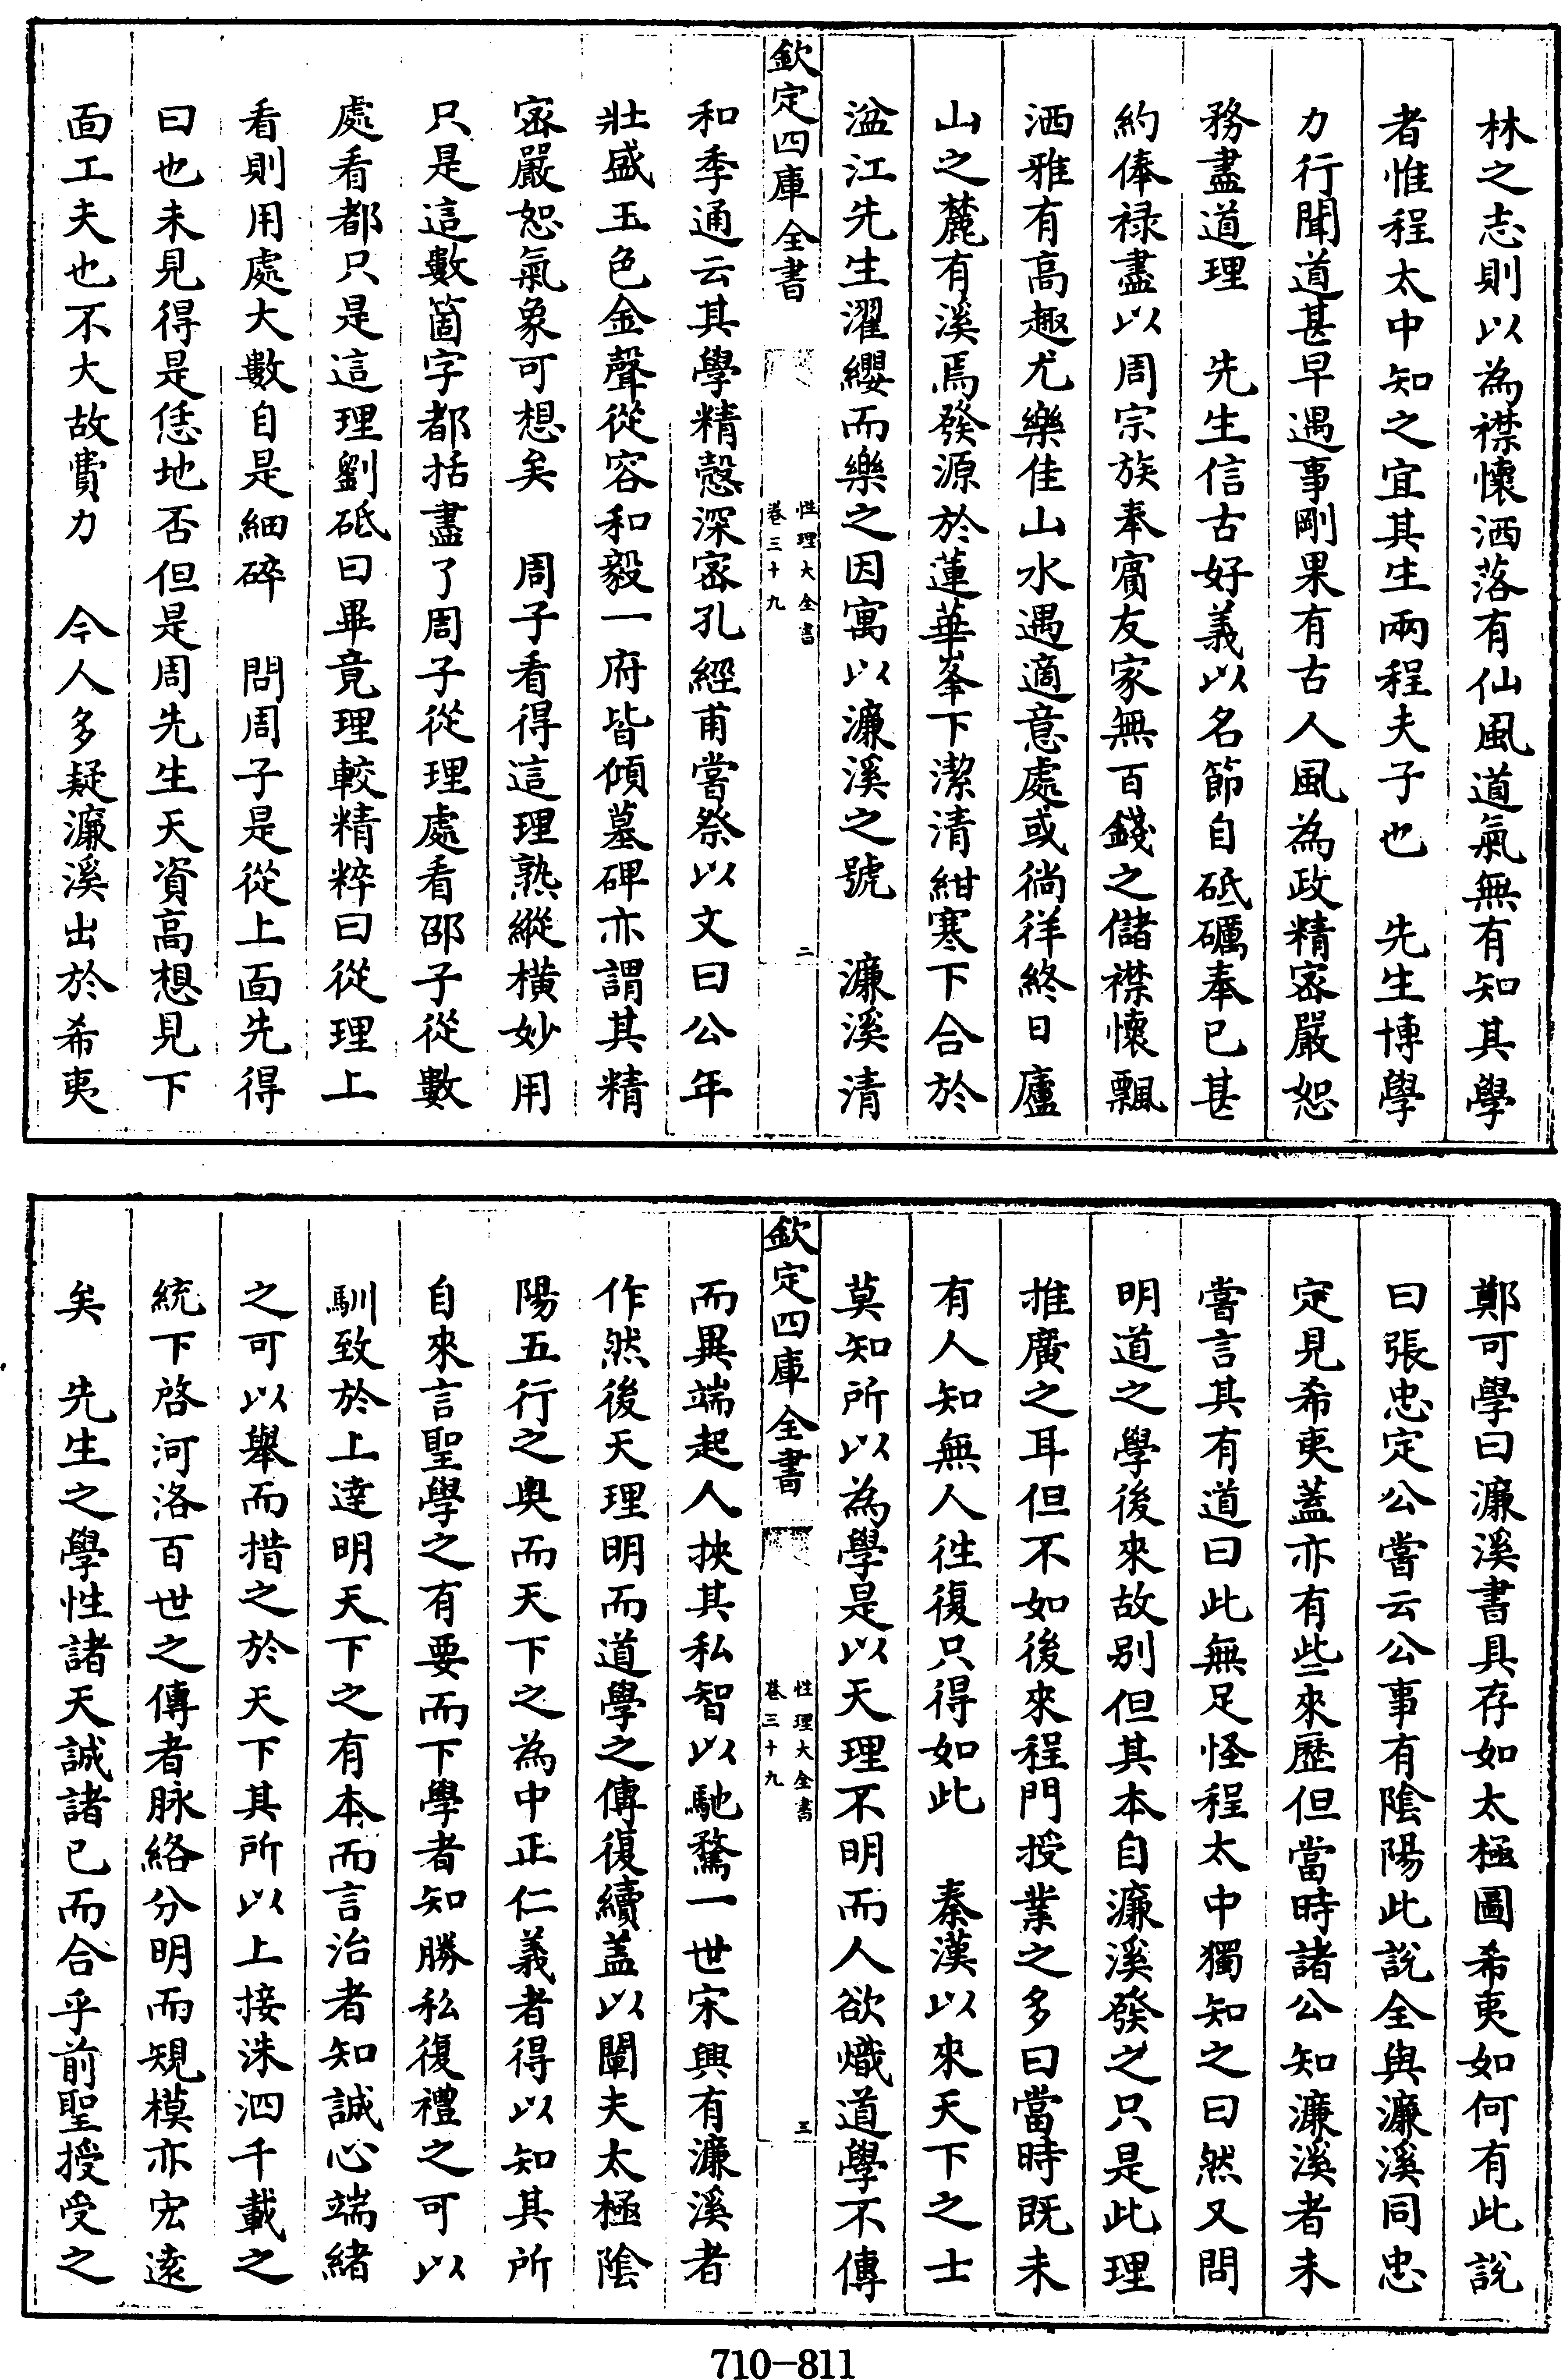 林之志則以為襟懷洒落有仙風道氣無有知其學
者惟程太中知之宜其生兩程夫子也　先生博學
力行聞道甚早遇事剛果有古人風為政精宻嚴恕
務盡道理　先生信古好義以名節自砥礪奉已甚
約俸禄盡以周宗族奉賓友家無百錢之儲襟懷飄
洒雅有高趣尤樂佳山水遇適意處或徜徉終日廬
山之麓有溪焉發源於蓮華峯下潔清紺寒下合於
湓江先生濯纓而樂之因寓以濂溪之號　濂溪清
欽定四庫全書
性理大全書
卷三十九
二
和季通云其學精慤深宻孔經甫嘗祭以文曰公年
壯盛玉色金聲從容和毅一府皆傾墓碑亦謂其精
宻嚴恕氣象可想矣　周子看得這理熟縱橫妙用
只是這數箇字都括盡了周子從理處看邵子從數
處看都只是這理劉砥曰畢竟理較精粹曰從理上
看則用處大數自是細碎　問周子是從上面先得
曰也未見得是恁地否但是周先生天資高想見下
面工夫也不大故費力　今人多疑濂溪出於希夷
鄭可學曰濂溪書具存如太極圖希夷如何有此說
曰張忠定公嘗云公事有陰陽此說全與濂溪同忠
定見希夷蓋亦有些來歷但當時諸公知濂溪者未
嘗言其有道曰此無足怪程太中獨知之曰然又問
明道之學後來故别但其本自濂溪發之只是此理
推廣之耳但不如後來程門授業之多曰當時既未
有人知無人徃復只得如此　秦漢以來天下之士
莫知所以為學是以天理不明而人欲熾道學不傳
欽定四庫全書
性理大全書
卷三十九
三
而異端起人挾其私智以馳騖一世宋興有濂溪者
作然後天理明而道學之傳復續盖以闡夫太極陰
陽五行之奥而天下之為中正仁義者得以知其所
自來言聖學之有要而下學者知勝私復禮之可以
馴致於上達明天下之有本而言治者知誠心端緒
之可以舉而措之於天下其所以上接洙泗千載之
統下啓河洛百世之傳者脉絡分明而規模亦宏逺
矣　先生之學性諸天誠諸已而合乎前聖授受之
710-811